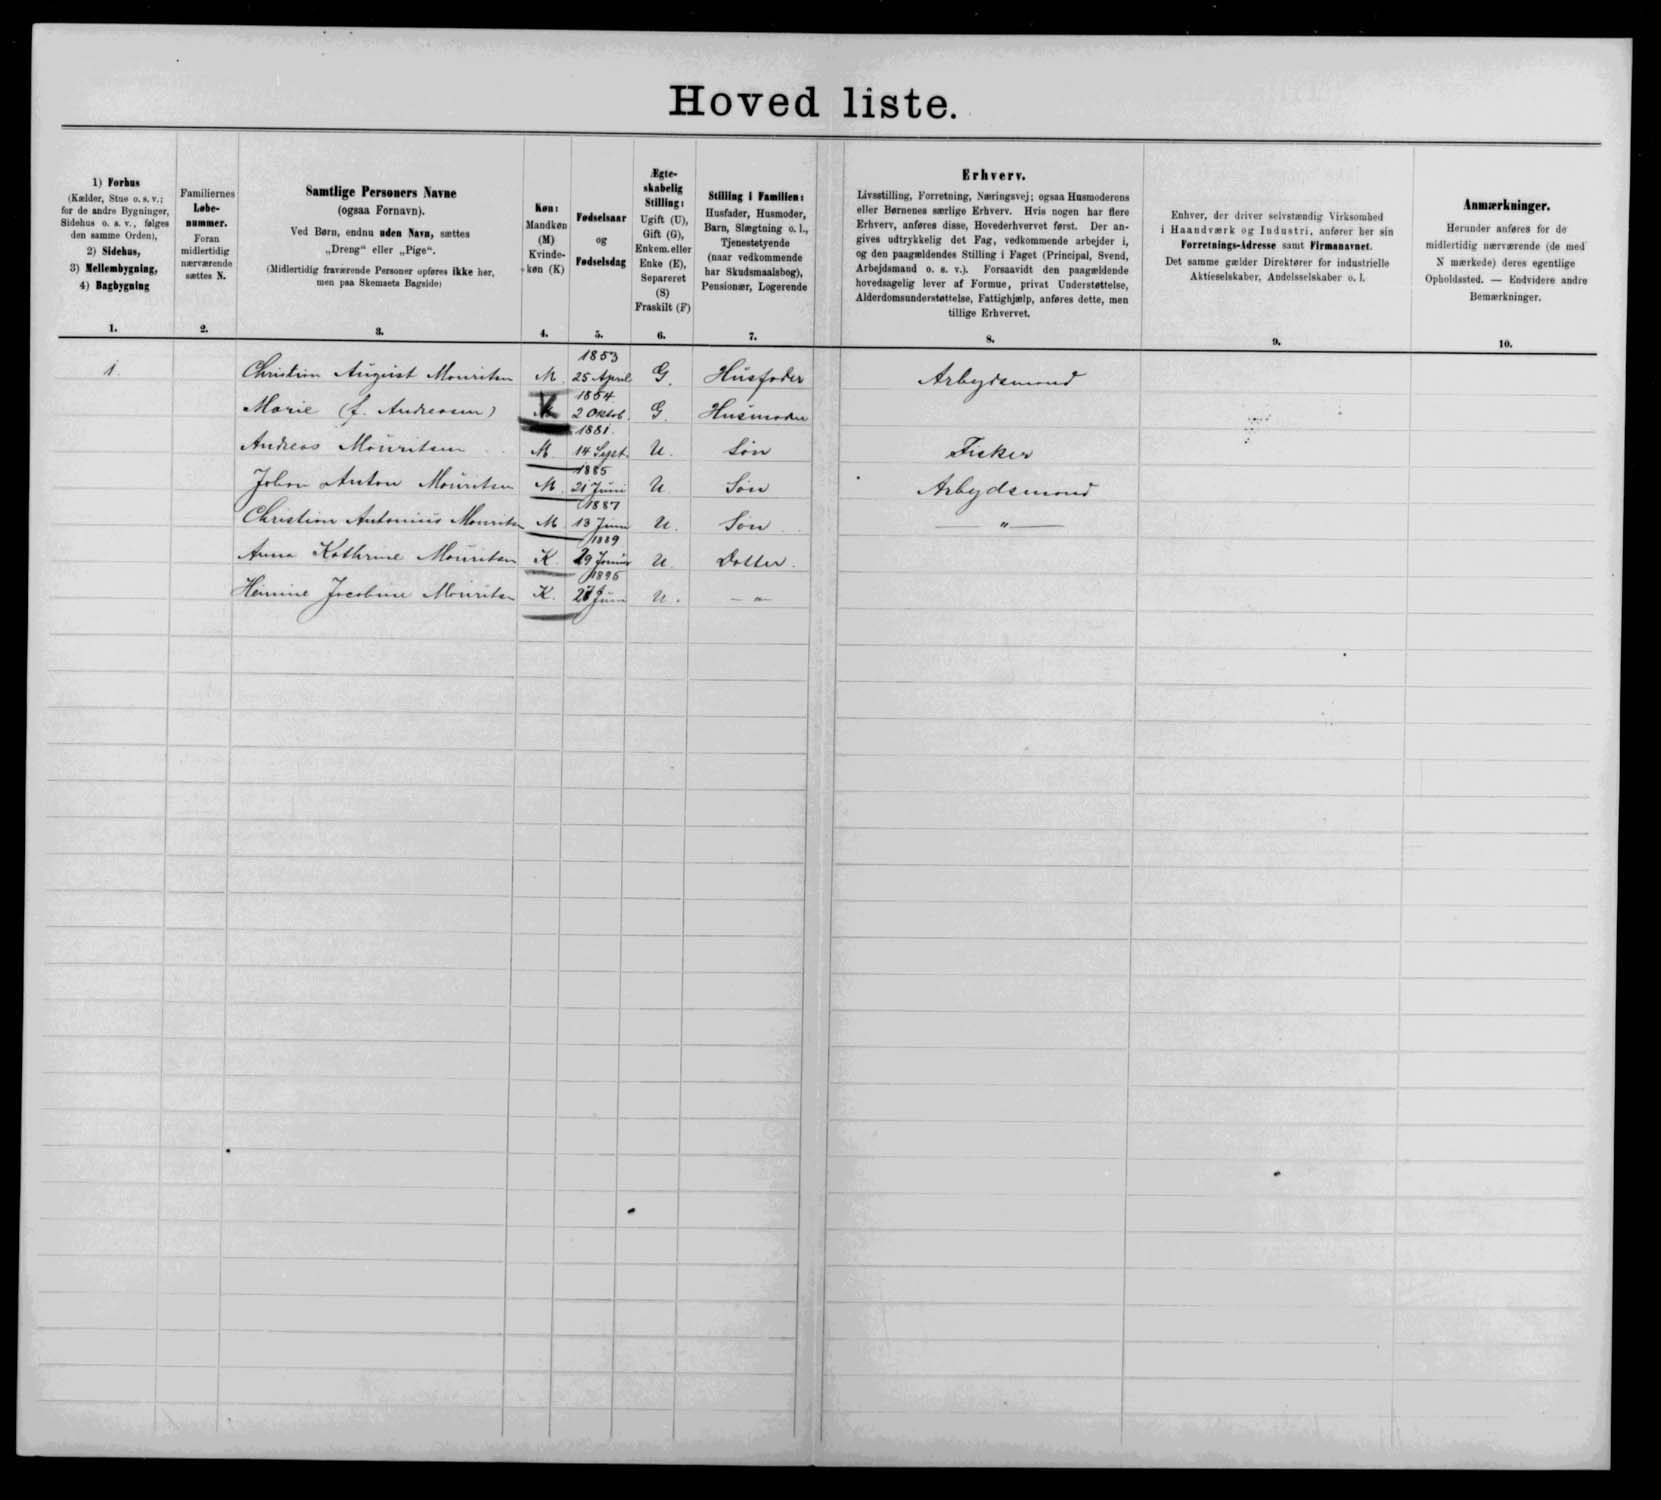 Hoved liste.
1) Forhus
(Kælder, Stue o. s. v.;
for de andre Bygninger,
Sidehus o. s. v., følges
den samme Orden),
2) Sidehus,
3) Mellembygning,
4) Bagbygning
1.
Familiernes
Løbe-
nummer.
Foran
midlertidig
nærværende
sættes N.
2.
Samtlige Personers Navne
(ogsaa Fornavn).
Ved Børn, endnu uden Navn, sættes
„Dreng“ eller „Pige“.
(Midlertidig fraværende Personer opføres ikke her,
men paa Skemaets Bagside)
3.
Køn:
Mandkøn
(M)
Kvinde-
køn (K)
4.
Fødselsaar
og
Fødselsdag
5.
Ægte-
skabelig
Stilling:
Ugift (U),
Gift (G),
Enkem. eller
Enke (E),
Separeret
(S)
Fraskilt (F)
6.
Stilling i Familien:
Husfader, Husmoder,
Barn, Slægtning o. l.,
Tjenestetyende
(naar vedkommende
har Skudsmaalsbog),
Pensionær, Logerende
7.
Erhverv.
Livsstilling, Forretning, Næringsvej; ogsaa Husmoderens
eller Børnenes særlige Erhverv. Hvis nogen har flere
Erhverv, anføres disse, Hovederhvervet først. Der an-
gives udtrykkelig det Fag, vedkommende arbejder i,
og den paagældendes Stilling i Faget (Principal, Svend,
Arbejdsmand o. s. v.). Forsaavidt den paagældende
hovedsagelig lever af Formue, privat Understøttelse,
Alderdomsunderstøttelse, Fattighjælp, anføres dette, men
tillige Erhvervet.
8.
Enhver, der driver selvstændig Virksomhed
i Haandværk og Industri, anfører her sin
Forretnings-Adresse samt Firmanavnet.
Det samme gælder Direktører for industrielle
Aktieselskaber, Andelsselskaber o. l.
9.
Anmærkninger.
Herunder anføres for de
midlertidig nærværende (de med
N mærkede) deres egentlige
Opholdssted. — Endvidere andre
Bemærkninger.
10.
1853
1. Christian August Mouritsen M. 25 April G. Husfader Arbejdsmand
1854.
Marie (f. Andreasen) 2 Oktob. G. Husmoder
1881.
Andreas Mouritsen M. 14 Sept. U. Søn Fisker
1885
Johan Anton Mouritsen M. 21 Juni U Søn Arbejdsmand
1887
Christian Antonius Mouritsen M. 13 Juni U. Søn — " —
1889
Anna Kathrine Mouritsen K. 29 Januar U. Datter.
1895
Jacobine Mouritsen K. Juni U. — " —